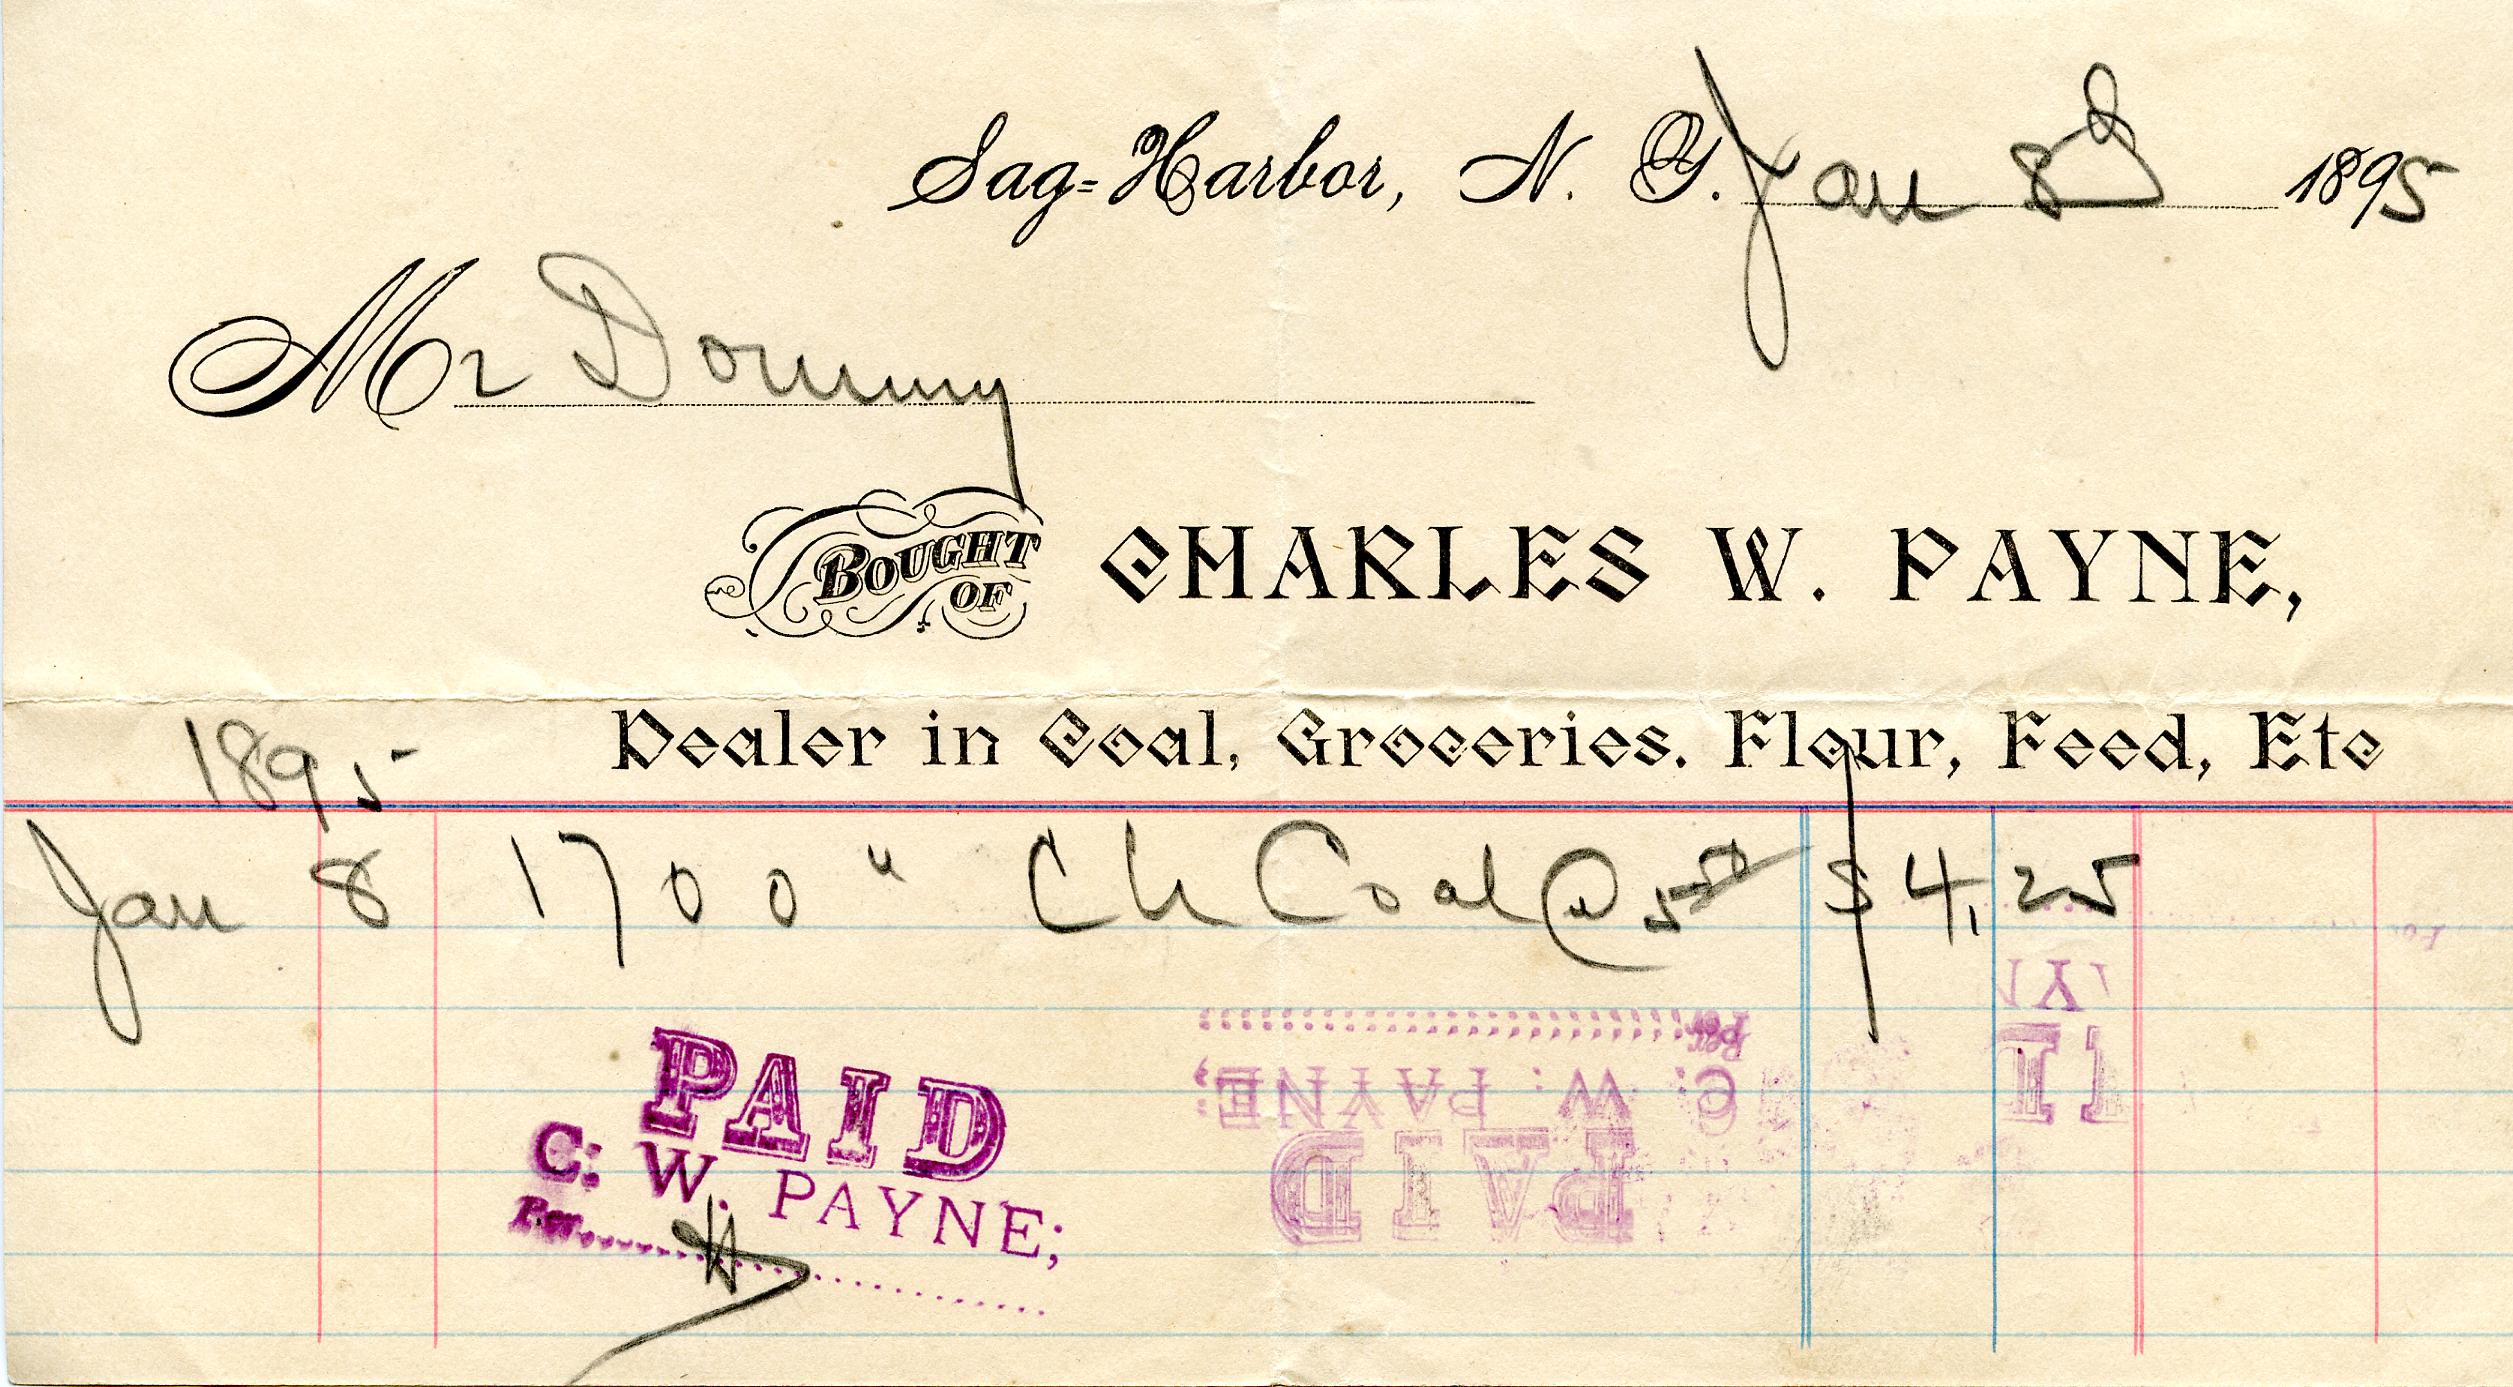 Sag-Harbor, N. Y. Jan 8 1895
Mr Dominy
BOUGHT OF CHARLES W. PAYNE,
Dealer in Coal, Groceries. Flour, Feed, Etc
1895
Jan 8 1700 " Ch Coal @ 5 $4,25
PAID
C: W. PAYNE;
Per
Per
C: W. PAYNE;
PAID